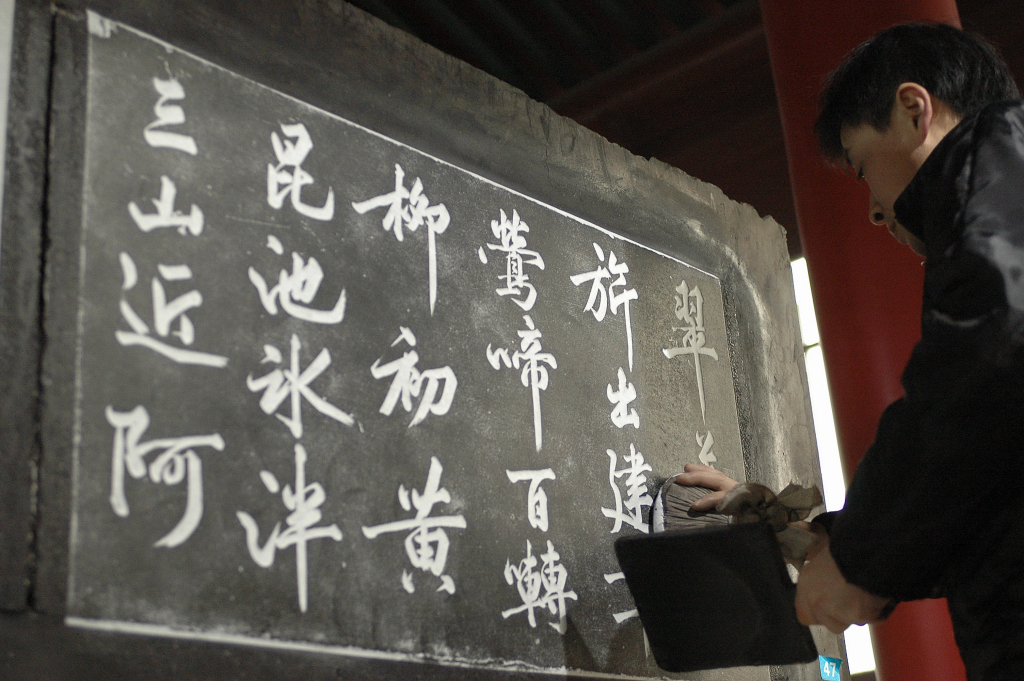 翠
旂出建
鶯啼百囀
柳初黃
昆池氷泮
三山近阿
47